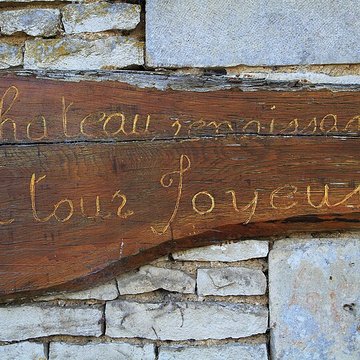 Chateau rennissa
tour Joyeus